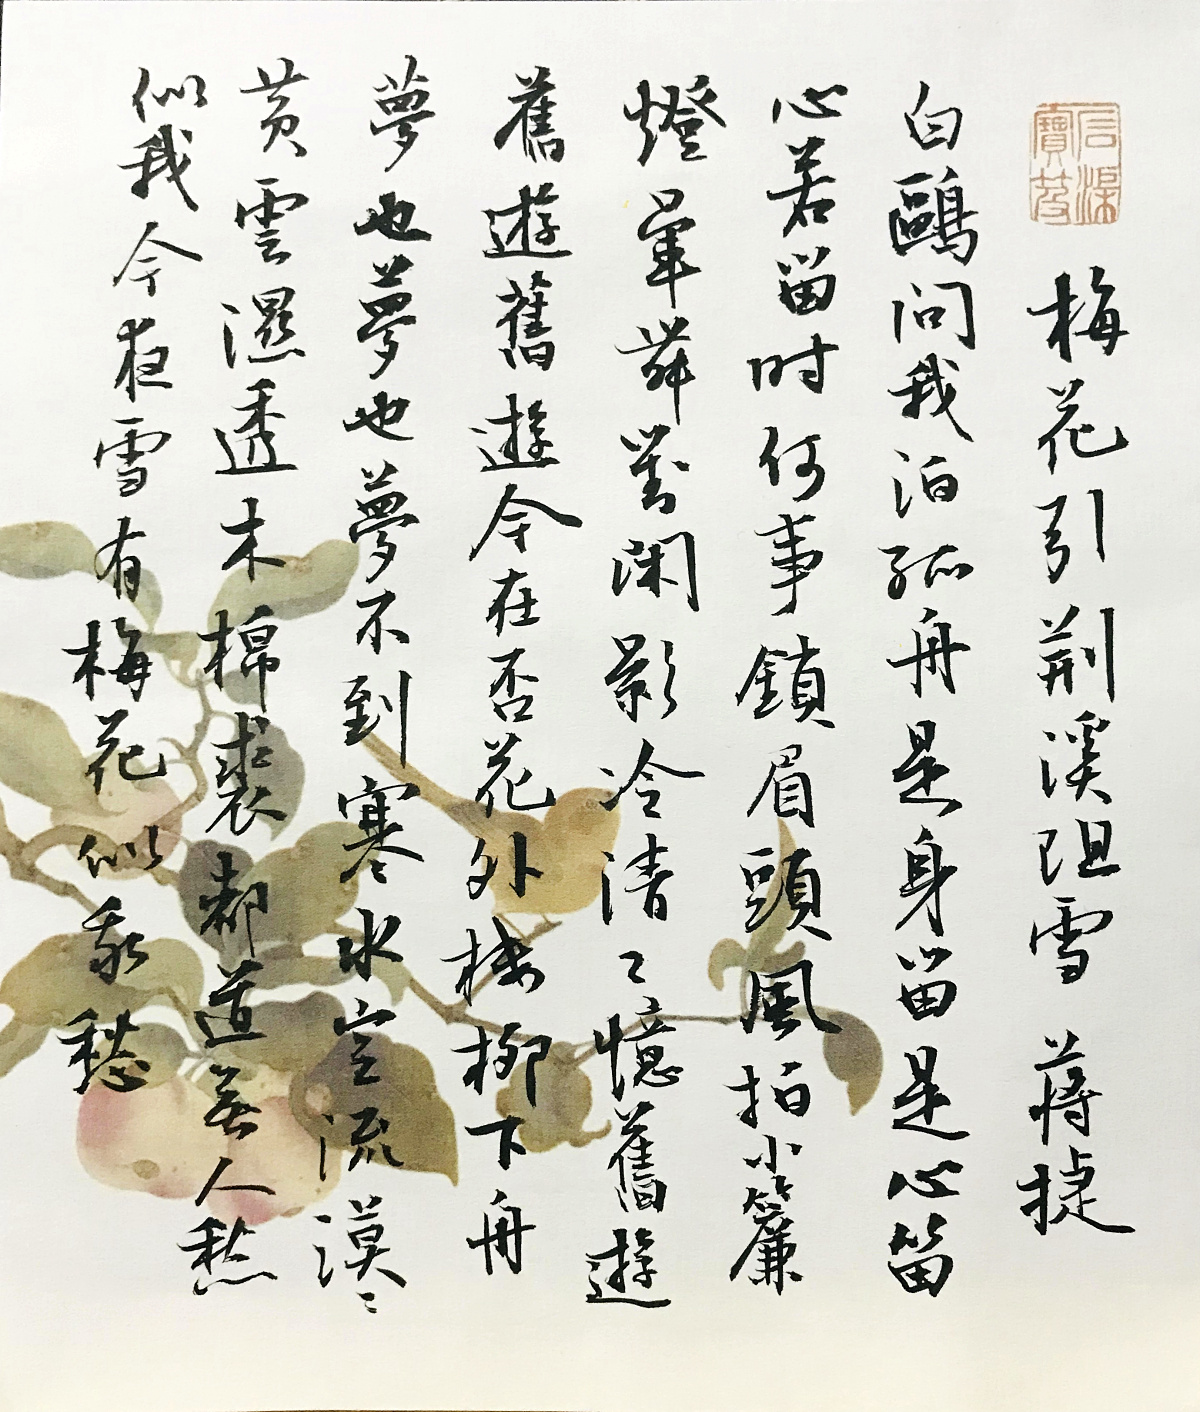 石渠寶笈
梅花引荆溪阻雪 蔣捷
白鷗問我泊孤舟是身留是心留
心若留时何事鎖眉頭風拍小簾
燈暈舞對閑影冷清〻憶舊遊
舊遊舊遊今在否花外楼柳下舟
夢也夢也夢不到寒水空流漠〻
黄雲濕透木棉裘都道無人愁
似我今夜雪有梅花似我愁